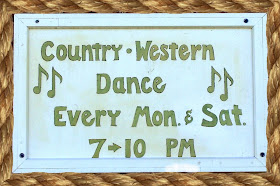 Country • Western
Dance
Every Mon. & Sat.
7→10 PM